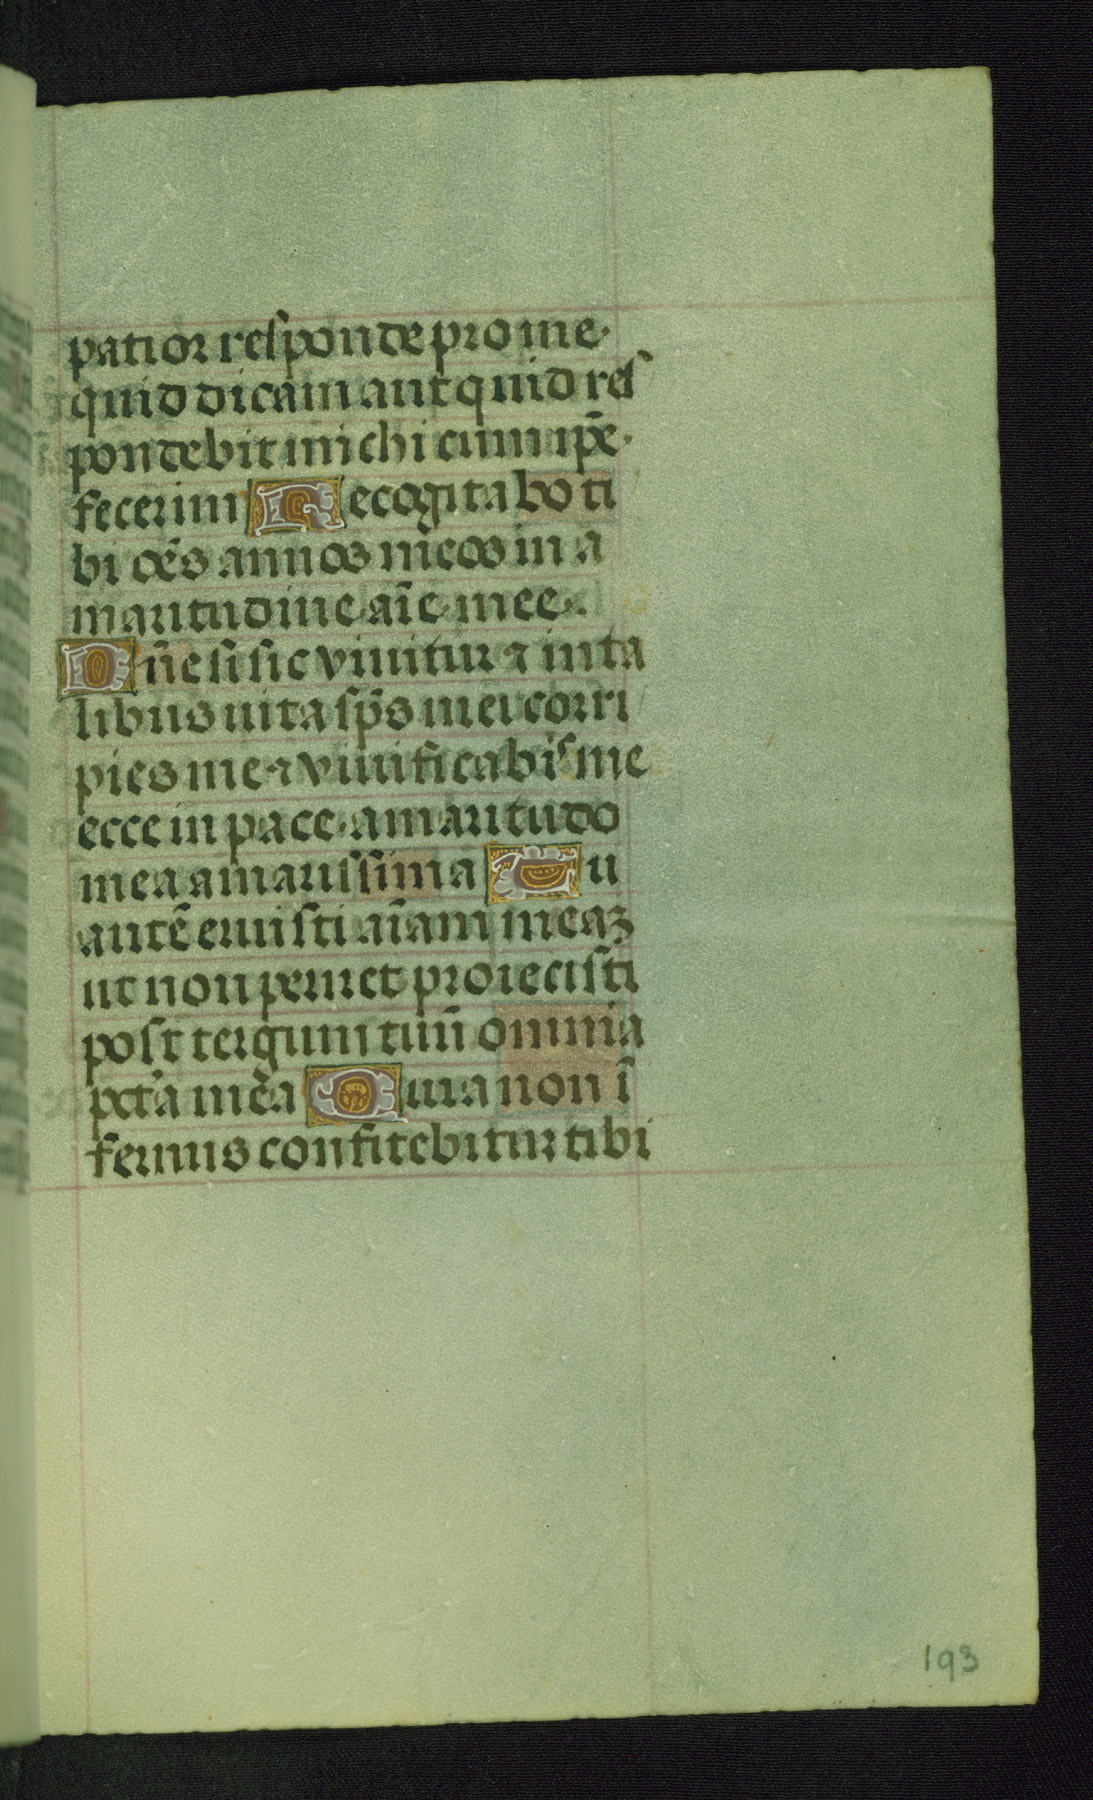 patior responde pro me·
quid dicam aut quid res
pondebit michi cum ip̄e·
fecerim Recogitabo ti
bi oēs annos meos in a
maritudine aīe mee·
Dn̄e si sic vivitur ⁊ in ta
libus uita sp̄s mei corri
pies me ⁊ vivificabis me
ecce in pace amaritudo
mea amarissima Tu
autē eruisti aīam meaꝫ
ut non periret proiecisti
post tergum tuū omnia
pct̄a mea Quia non ī
fernus confitebitur tibi
193